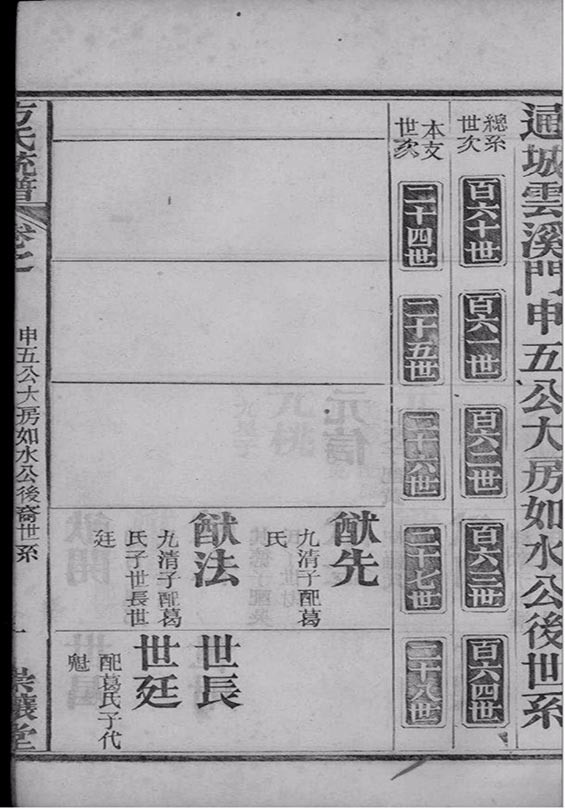 通城雲溪門申五公大房如水公後世系
總系世次
百六十世
百六一世
百六二世
百六三世
百六四世
本支世次
二十四世
二十五世
二十六世
二十七世
二十八世
猷先
九清子配葛
氏
猷法
九清子配葛
氏子世長世
廷
世長
世廷
配葛氏子代
魁
方氏統譜
卷之
申五公大房如水公後裔世系